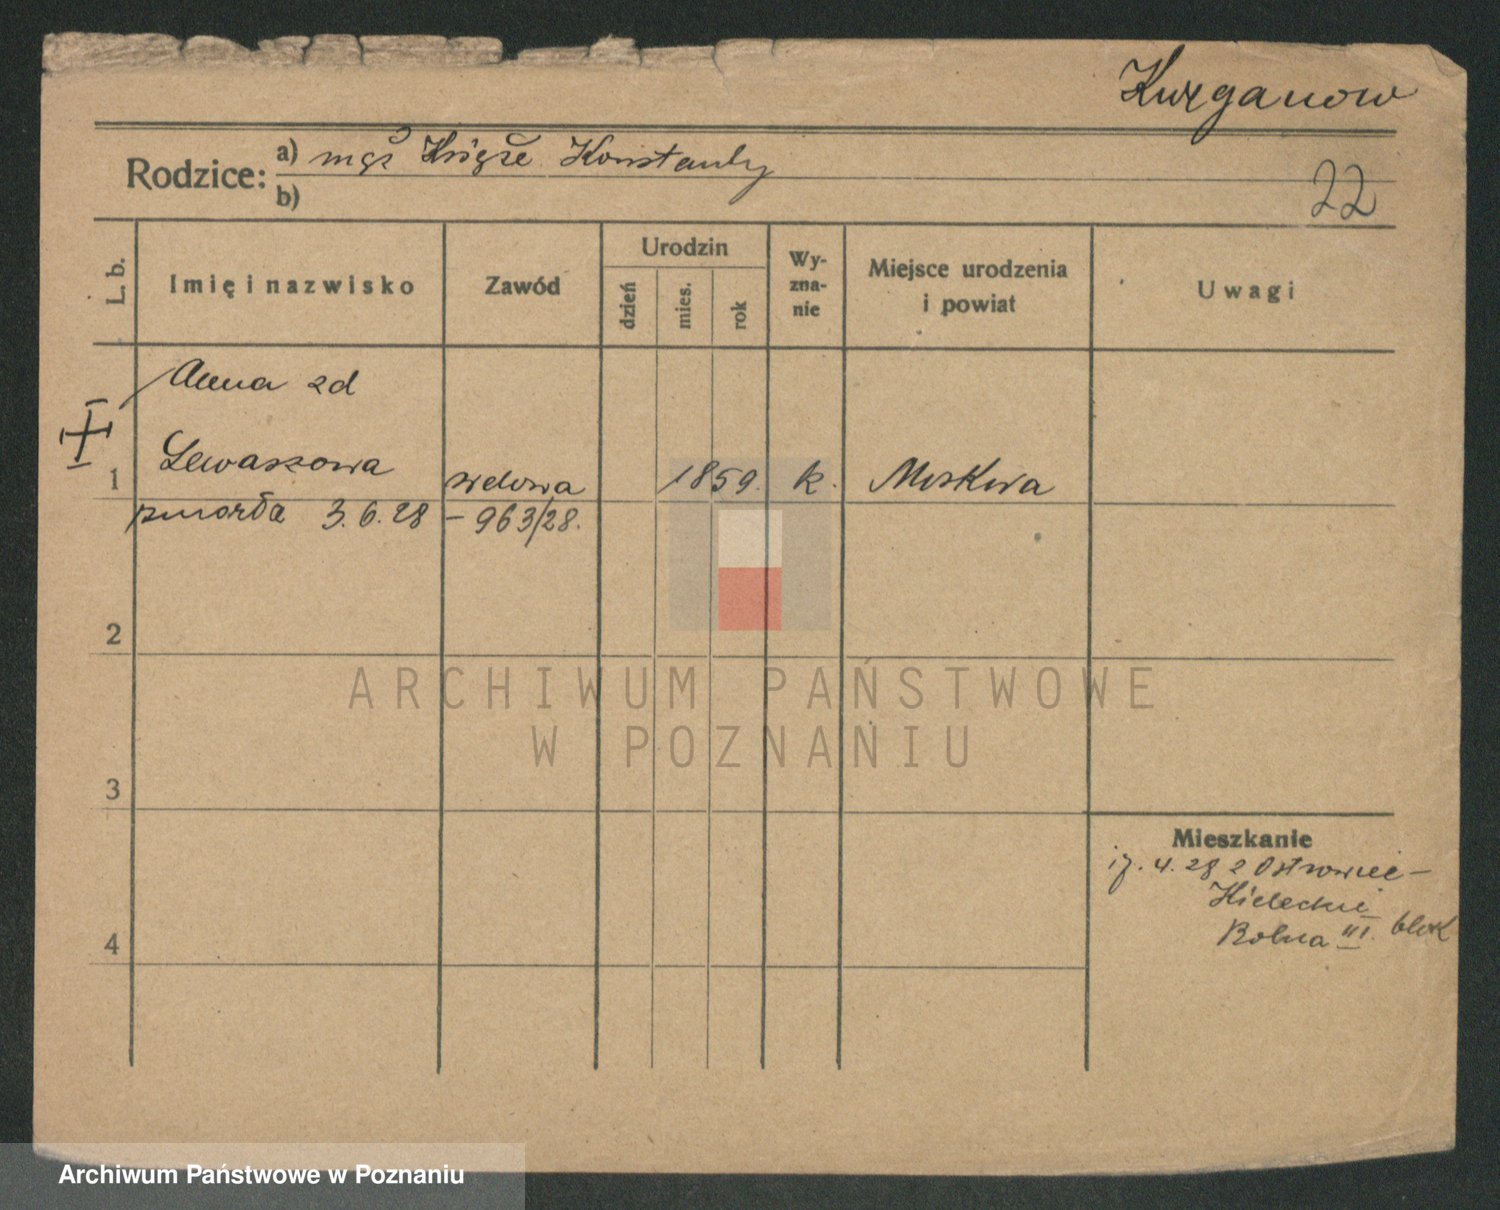 Kurganow
Rodzice: a) mąż Książe Konstanty
b)
22
L. b.
Imię i nazwisko
Zawód
Urodzin
dzień
mies.
rok
Wy-
zna-
nie
Miejsce urodzenia
i powiat
Uwagi
Anna zd
1 Lewaszowa wdowa 1859. k. Moskwa
zmarła 3.6.28 – 963/28.
2
3
4
Mieszkanie
17.4.28 z Ostrowiec –
Kielecki
Rolna III. blok
ARCHIWUM PAŃSTWOWE
W POZNANIU
Archiwum Państwowe w Poznaniu